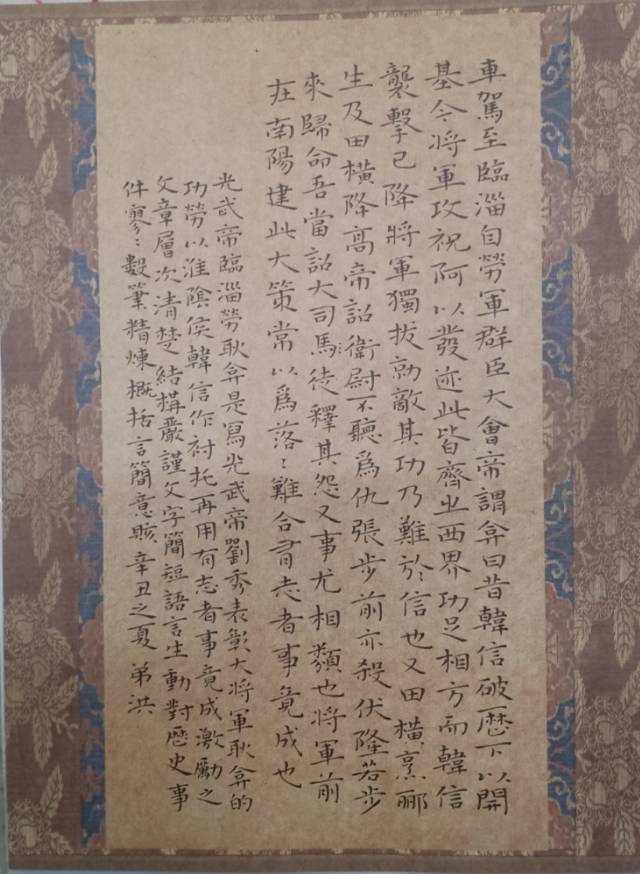 車駕至臨淄自勞軍群臣大會帝謂弇曰昔韓信破歷下以開
基今將軍攻祝阿以發迹此皆齊之西界功足相方而韓信
襲擊已降將軍獨拔勍敵其功乃難於信也又田橫烹酈
生及田橫降高帝詔衛尉不聽為仇張步前亦殺伏隆若步
來歸命吾當詔大司馬徒釋其怨又事尤相類也將軍前
在南陽建此大策常以為落〻難合有志者事竟成也
光武帝臨淄勞耿弇是寫光武帝劉秀表彰大將軍耿弇的
功勞以淮陰侯韓信作襯托再用有志者事竟成激勵之
文章層次清楚結構嚴謹文字簡短語言生動對歷史事
件寥〻數筆精煉概括言簡意賅 辛丑之夏 弟洪